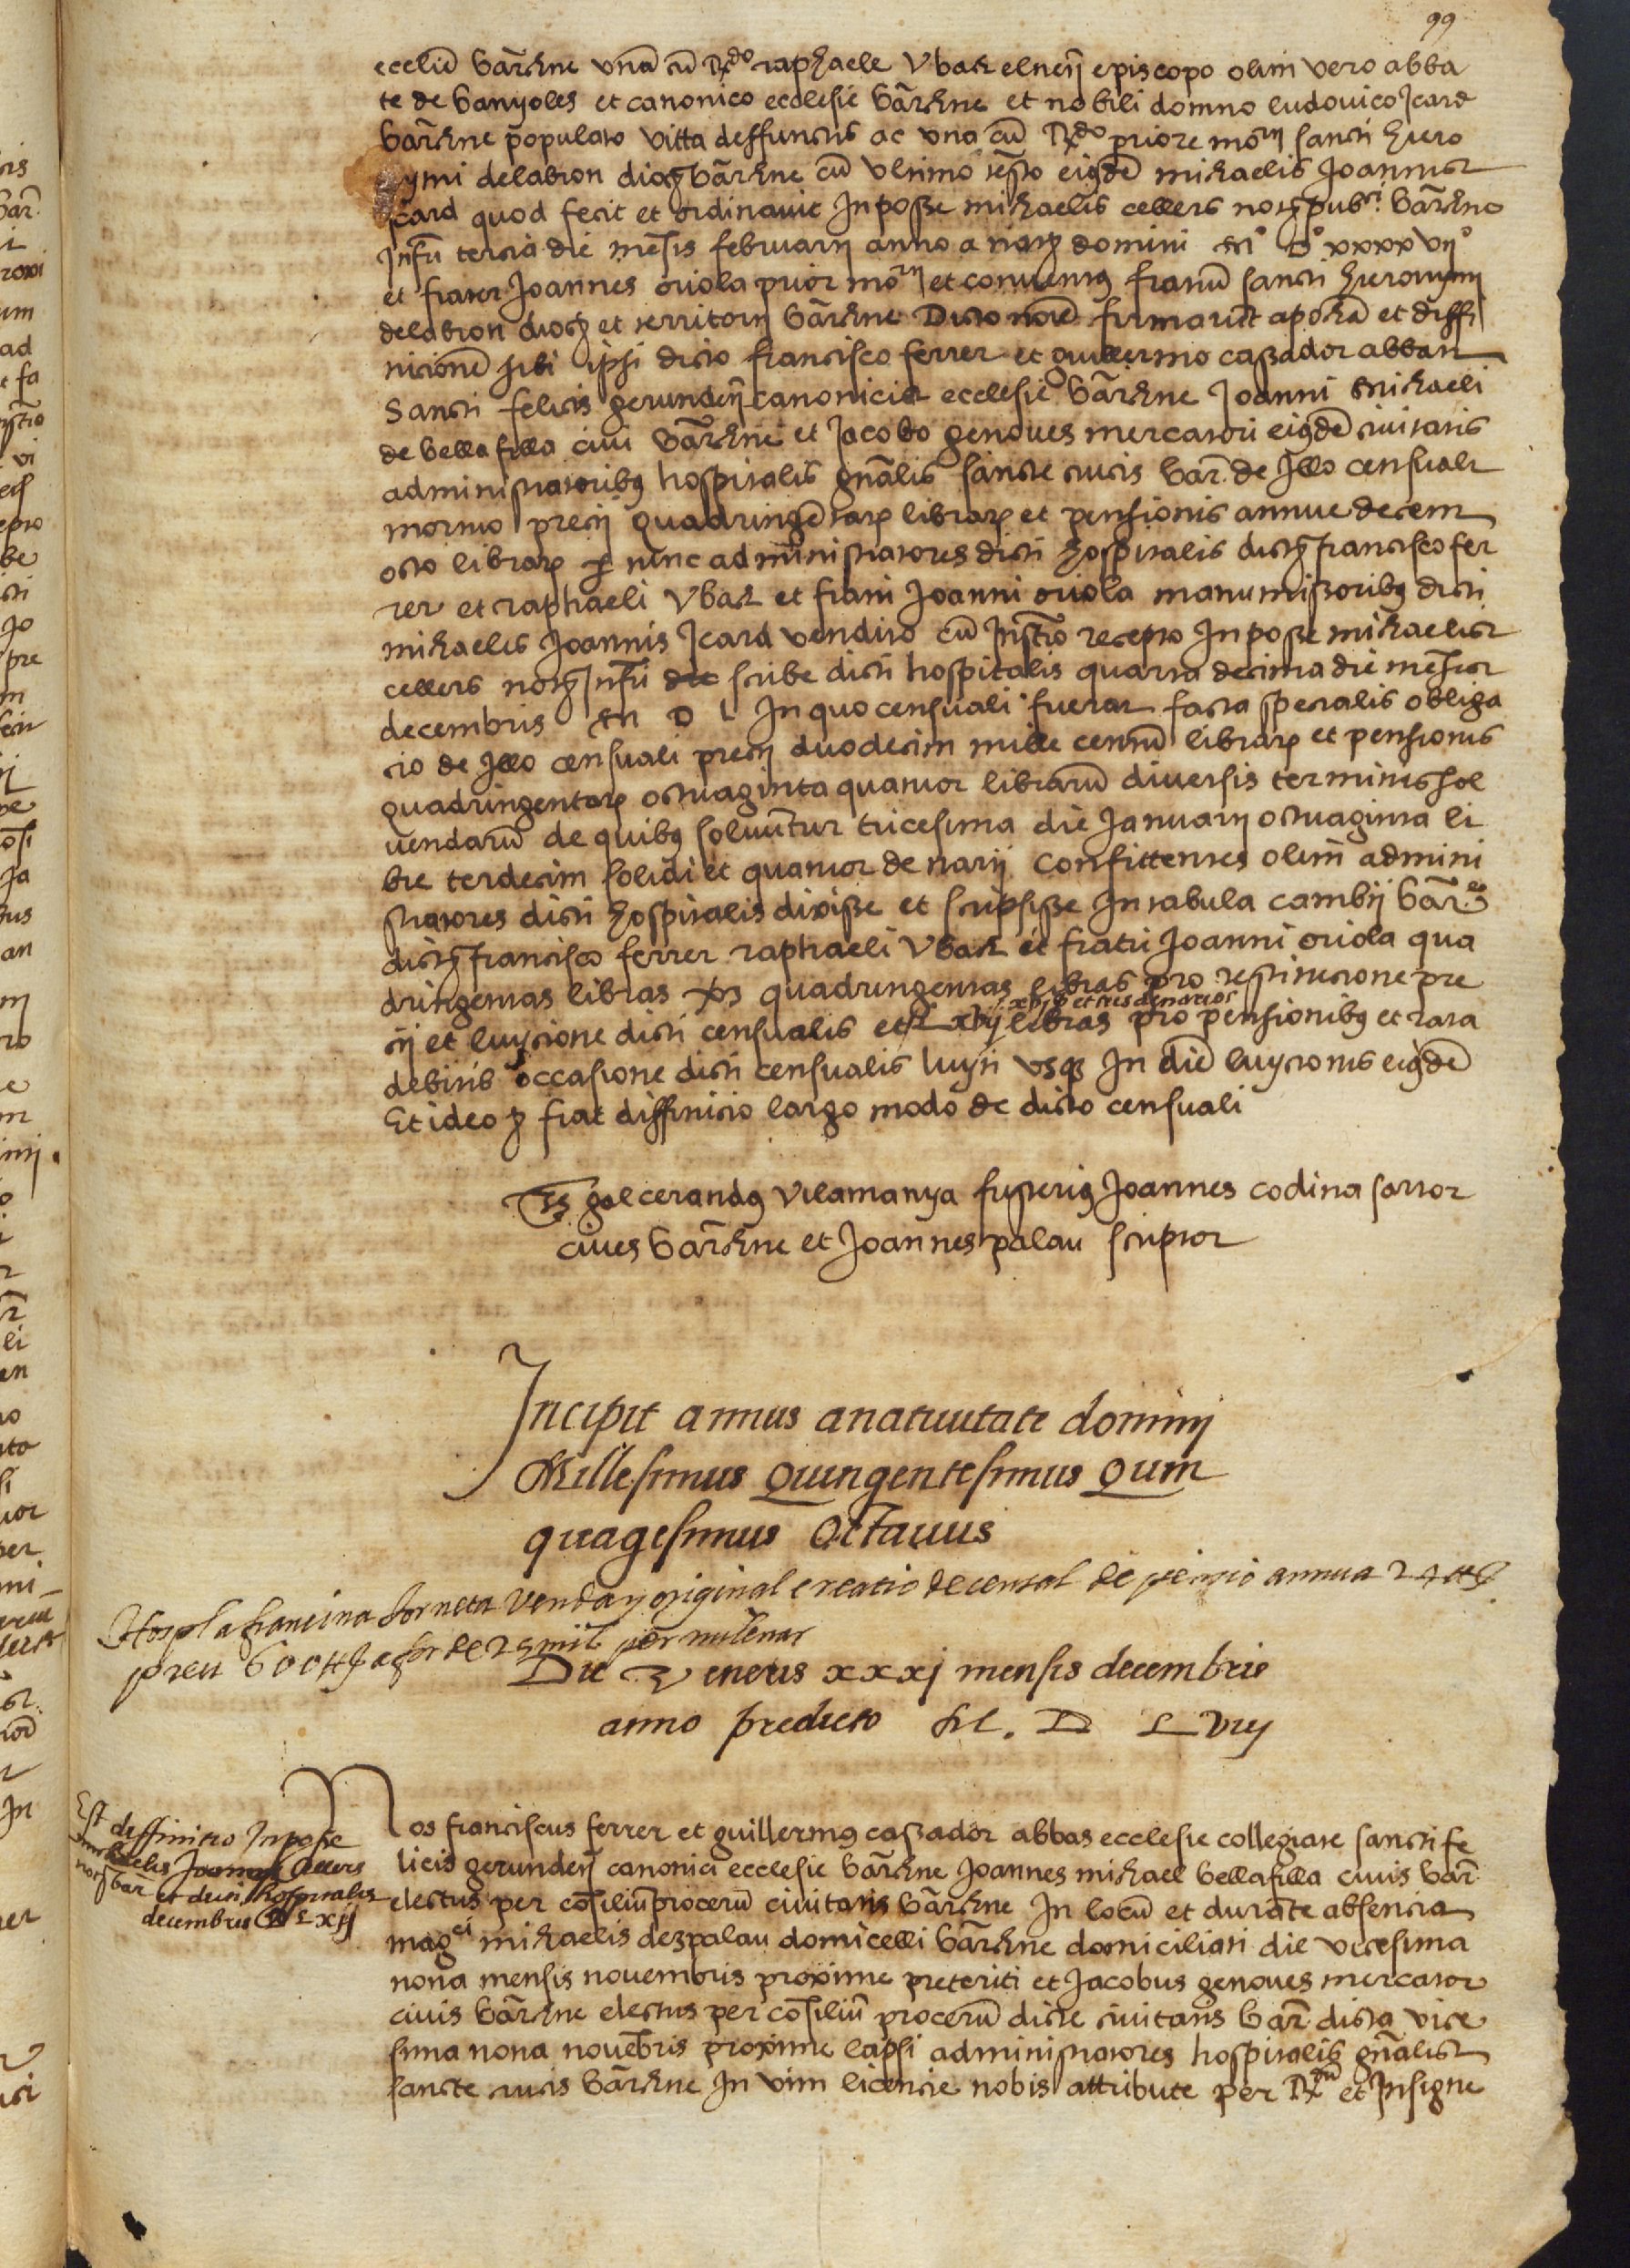 99
ecclie bārchne una cū Rdo raphaele Ubach elneñ episcopo olim vero abba
te de banyoles et canonico ecclesie bārchne et nobili domno ludovico Icard
bārchne populato vitta deffunctis ac una cū Rdo priore morij sancti hiero
nymi delabron dioc bārchne cū ultimo testo eiusdē michaelis Joannis
Icard quod fecit et ordinavit Inposse michaelis cellers not pubci bārchne
Infri tercia die mēsis februarij anno a nat domini Mº Dº xxxxvijº
et frater Joannes oriola prior morij et conventus fratrū sancti hieronymi
delabron dioc et territorij bārchne Dicto noīe firmarūt apochā et diffi
nicionē sibi ipsi dicto francisco ferrer et guillermo cassador abbati
Sancti felicis gerundeñ canonicis ecclesie bārchne Joanni Michaeli
de bellafilla civi bārchne et Jacobo genoves mercatori eiusdē civitatis
administratoribus hospitalis gnālis sancte crucis bār de Illo censuali
mortuo precij quadringētarum librarum et pensionis annue decem
octo librarum per nunc administratores dicti hospitalis dictis francisco fer
rer et raphaeli Ubach et fratri Joanni oriola manumissoribus dicti
michaelis Joannis Icard vendito cū Instro recepto Inposse michaelis
cellers not Infri scribe dicti hospitalis quarta decima die mēsis
decembris M D L In quo censuali fuerat facta specialis obliga
cio de Illo censuali precij duodecim mille centū librarum et pensionis
quadringentarum octuaginta quatuor librarū diversis terminis sol
vendarū de quibus solvūtur tricesima die Januarij octuaginta li
bre terdecim solidi et quatuor denarij Confittentes olim admini
stratores dicti hospitalis dixisse et scripsisse In tabula cambij bār eo
dictis francisco ferrer raphaeli Ubach et fratri Joanni oriola qua
dringentas libras videlicet quadringentas libras pro restitucione pre
xvij s et tres denarios
cij et luycione dicti censualis et xvij libras pro pensionibus et rata
debitis occasione dicti censualis luyti usque In diē luycionis eiusdē
Et ideo etc fiat diffinicio largo modo de dicto censuali
Ts galcerandus vilamanya fusterius Joannes codina sartor
cives bārchne et Joannes palau scriptor
Incipit annus anativitate dominj
Millesimus Quingentesimus Quin
quagesimus Octavus
Hospl a francina Venda y original creatio de censal de pencio annua 24
preu 600 a for de 25 mil per milenar
Die Veneris xxxj mensis decembris
anno predicto M. D L viij
Est deffinitio Inposse
michaelis Joannis cellers
not bar et dicti hospitalis
decembris M D L xij
Nos franciscus ferrer et guillermus cassador abbas ecclesie collegiate sancti fe
licis gerundeñ canonici ecclesie bārchne Joannes michael bellafilla civis bār
electus per cōsiliū procerū civitatis bārchne In locū et durāte absencia
magci michaelis dezpalau domicelli bārchne domiciliati die vicesima
nona mensis novembris proxime preteriti et Jacobus genoves mercator
civis bārchne electus per cōsiliū procerū dicte civitatis bār dicta vice
sima nona novēbris proxime lapsi administratores hospitalis gnālis
sancte crucis bārchne In vim licencie nobis attribute per Rdū et Insigne